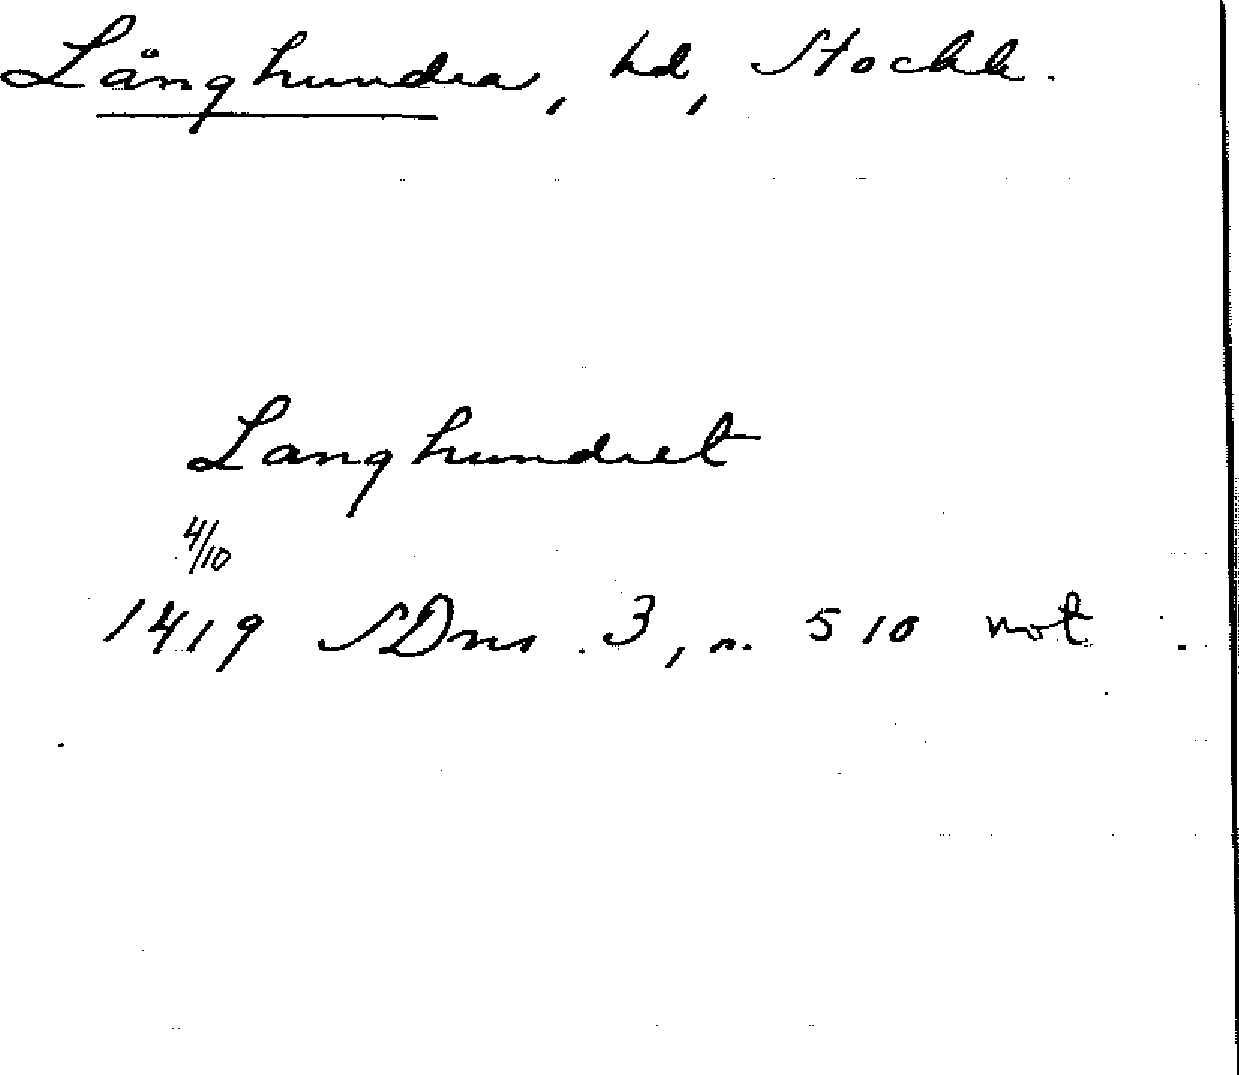 Långhundra, hd, Stockh.
Langhundret
4/10
1419 SDns. 3, n. 510 not.